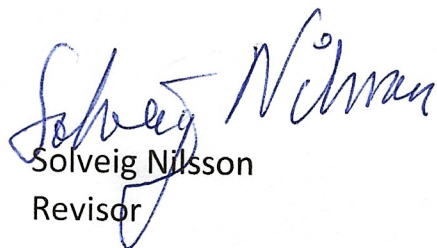 Solveig Nilsson
Solveig Nilsson
Revisor